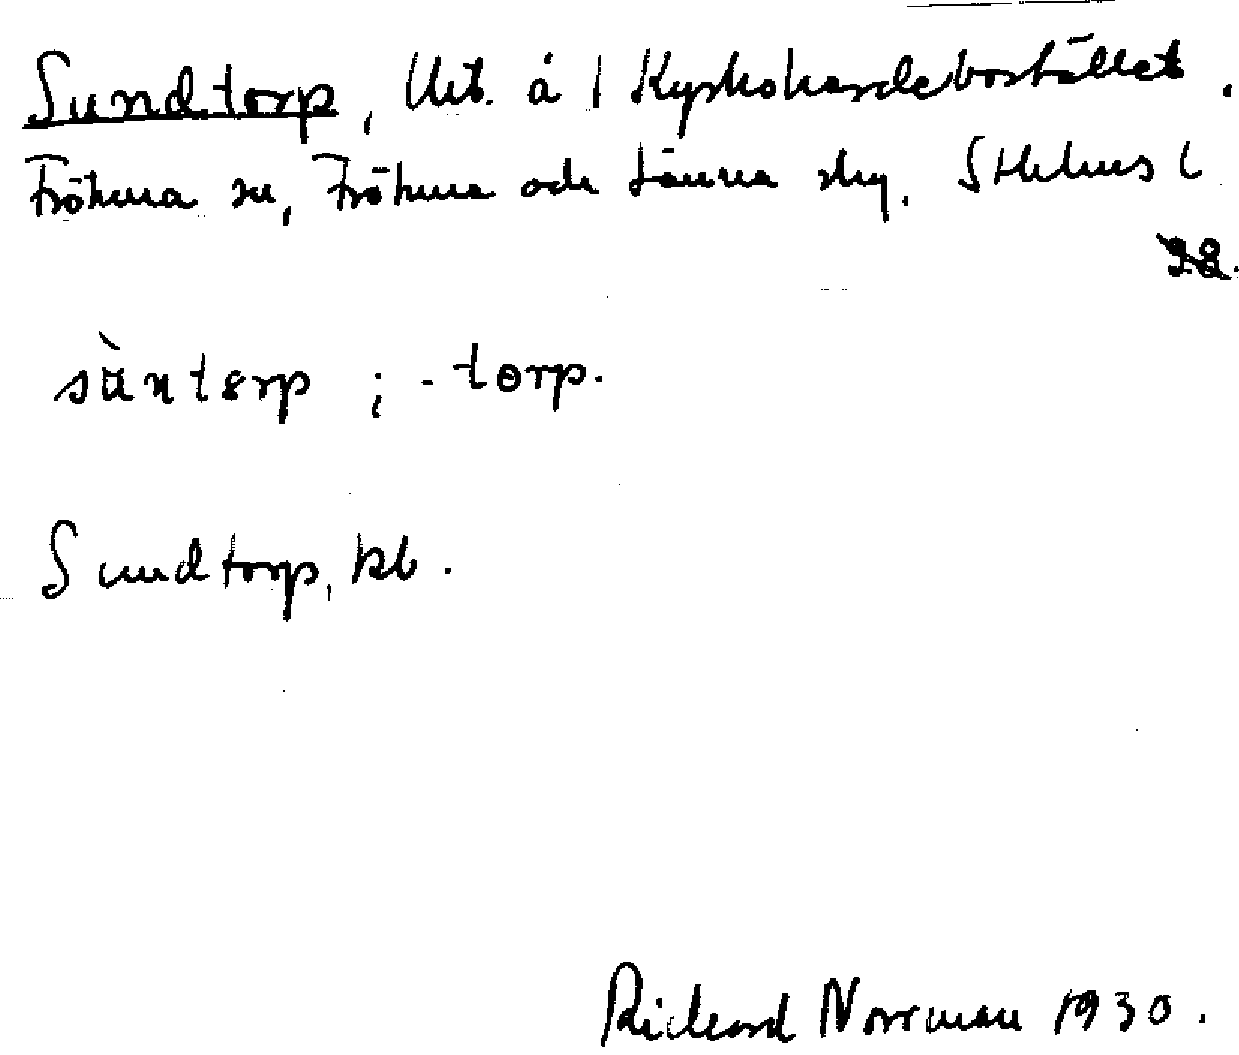 Sundtorp, Utt. å 1 Kyrkoherdebostället.
Frötuna sn, Frötuna och Länna skg. Sthlms l
süntɵrp ; -tɵrp.
Sundtorp, kb.
Rickard Norrman 1930.